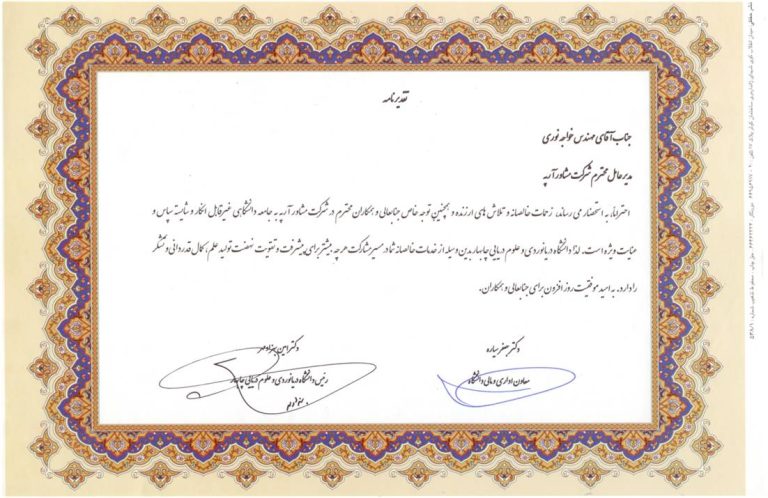 تقدیرنامه
جناب آقای مهندس خواجه نوری
مدیرعامل محترم شرکت مشاور آرپه
احتراماً، به استحضار می رساند، زحمات خالصانه و تلاش های ارزنده و همچنین توجه خاص جنابعالی و همکاران محترم در شرکت مشاور آرپه به جامعه دانشگاهی غیرقابل انکار و شایسته سپاس و
عنایت ویژه است. لذا دانشگاه دریانوردی و علوم دریایی چابهار بدین وسیله از خدمات خالصانه شما در مسیر مشارکت هرچه بیشتر برای پیشرفت و تقویت نهضت تولید علم، کمال قدردانی و تشکر
را دارد. به امید موفقیت روز افزون برای جنابعالی و همکاران.
دکتر جعفر سیاره
معاون اداری و مالی دانشگاه
دکتر امین
رئیس دانشگاه دریانوردی و علوم دریایی چابهار